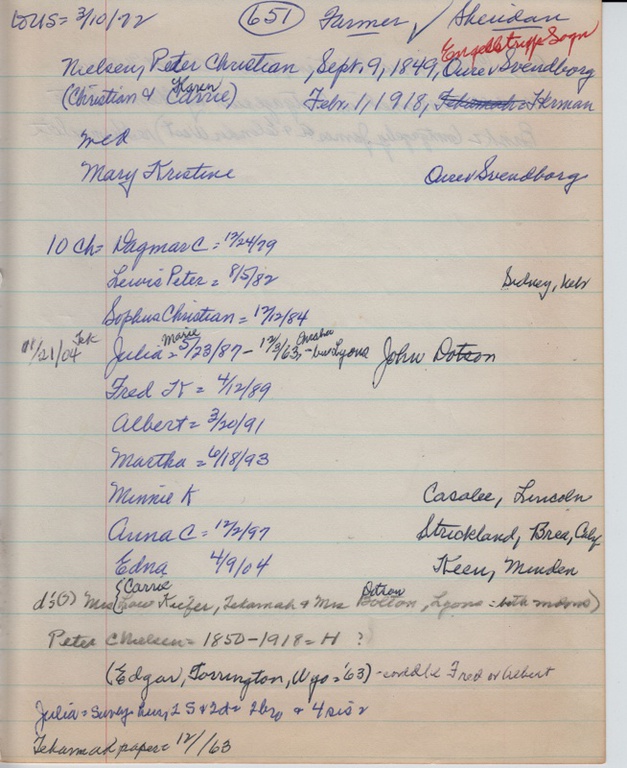 to US = 3/10/72 (651) Farmer ✓ Sheridan
Engelstruppe Sogn
Nielsen, Peter Christian, Sept. 9, 1849, Ourev Svendborg
Karen
(Christian & Carrie) Feb. 1, 1918, Tekamah = Herman
med
Mary Kristine Ourev Svendborg
10 Ch = Dagmar C = 12/24/79
Lewis Peter = 8/5/82 Sidney, Nebr
Sophus Christian = 12/12/84
Marie Omaha
11/21/04 Tek Julia = 5/23/87 - 12/3/63, - bur Lyons John Dotson
Fred K = 4/12/89
Albert = 3/20/91
Martha = 6/18/93
Minnie K Casalee, Lincoln
Anna C = 12/2/97 Strickland, Brea, Calif
Edna 4/9/04 Keen, Minden
(Carrie Dotson
d's(?) Mrs Kiefer, Tekamah & Mrs Bolton, Lyons = both mdms)
Peter C Nielsen = 1850-1918 = H ?
(Edgar, Torrington, Wyo = '63) - could be Fred or Albert
Julia = Surv by hus, 2 S & 2d = 2 bro & 4 sis
Tekamah paper = 12/ /63